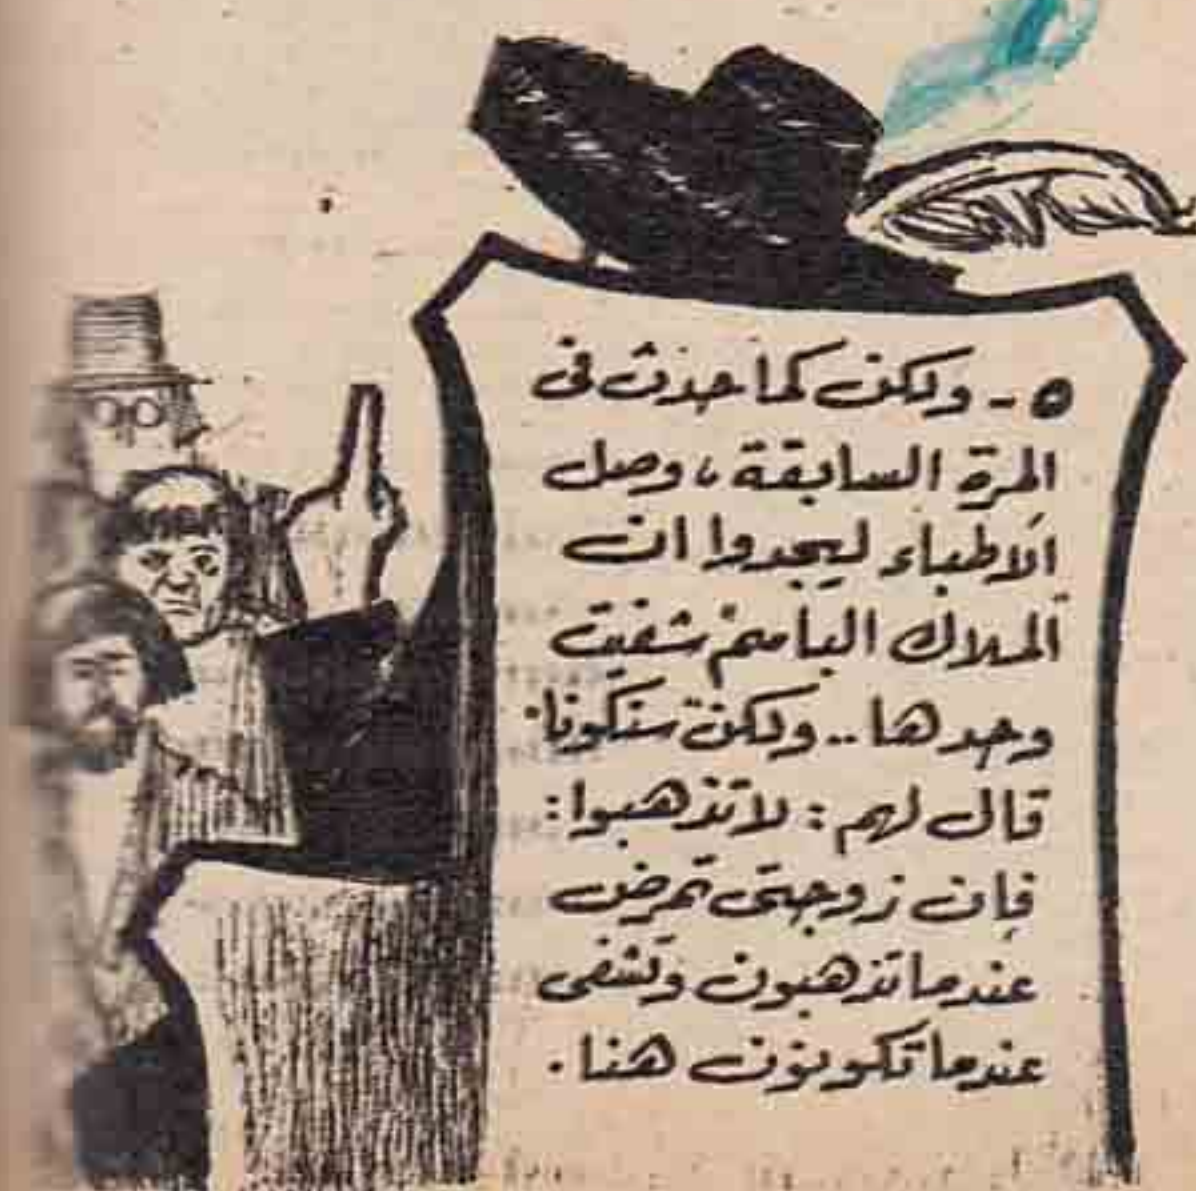 ٥ - ولكن كما حدث فى
المرة السابقة ، وصل
الأطباء ليجدوا ان
الملاك الباسم شفيت
وحدها .. ولكن سنكونا
قال لهم : لا تذهبوا :
فإن زوجتى تمرض
عندما تذهبون وتشفى
عندما تكونون هنا .